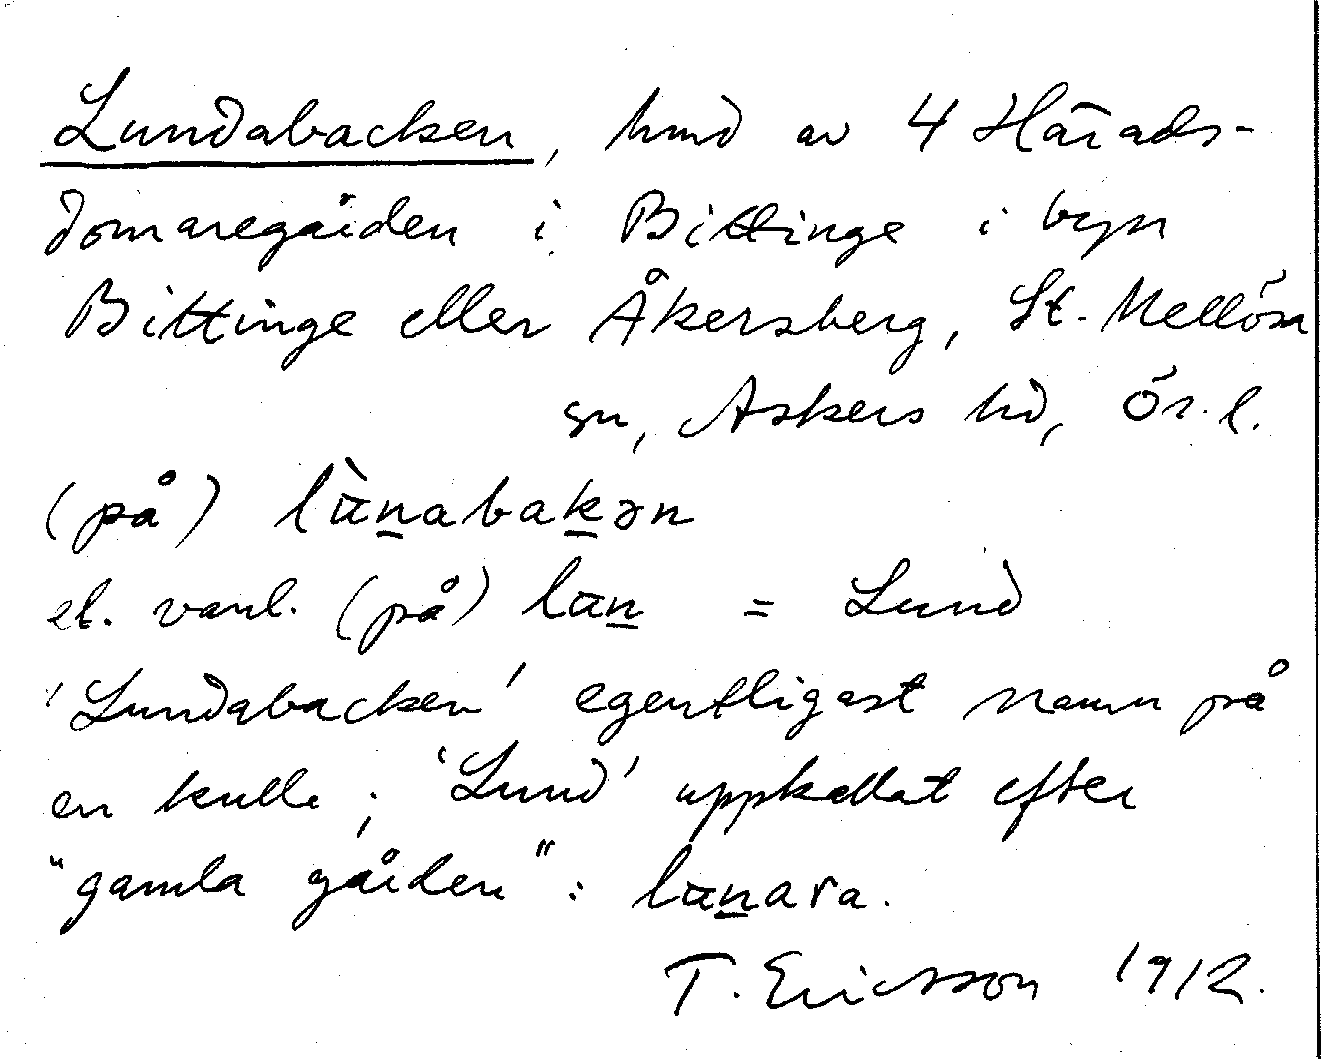 Lundabacken, hmd av 4 Härads-
domaregården i Bittinge i byn
Bittinge eller Åkersberg, St. Mellösa
sn, Askers hd, Ör. l.
(på) lànabakən
el. vanl. (på) lan = Lund
'Lundabacken' egentligast namn på
en kulle; 'Lund' uppkallat efter
"gamla gården": lanara.
T. Ericsson 1912.